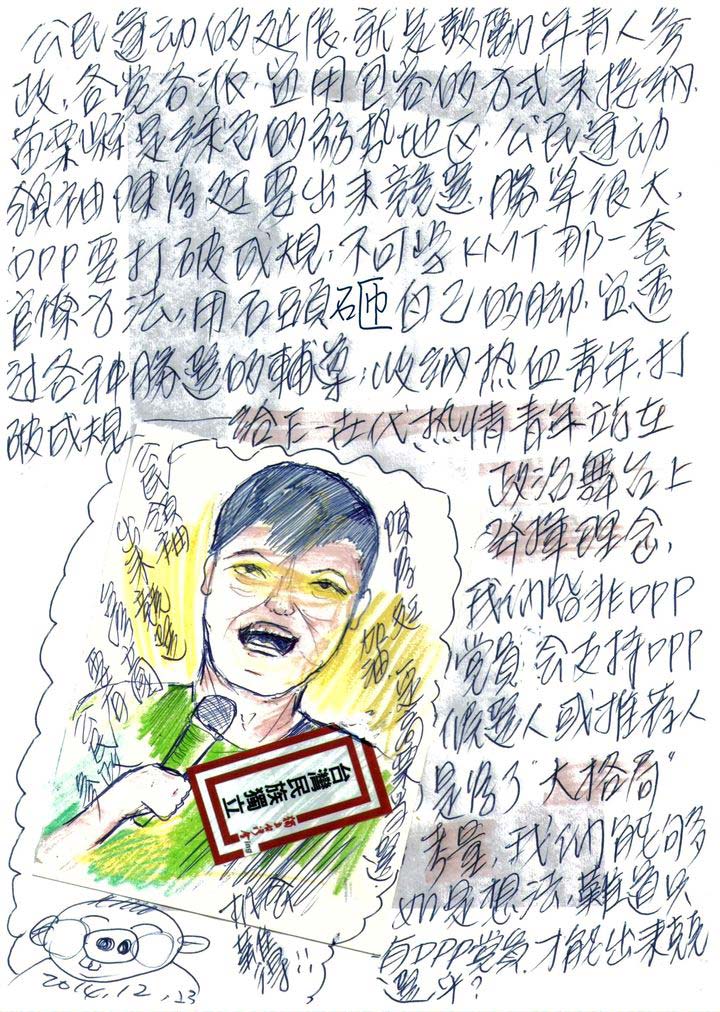 公民運动的延展,就是鼓勵年青人参
政,各党各派,宜用包容的方式来接納,
苗栗縣是綠色的弱势地区,公民運动
領袖陳為廷要出来競選,勝算很大,
DPP要打破成規,不可学KMT那一套
官僚方法,用石頭砸自己的脚,宜透
过各种勝選的輔導,收納热血青年,打
破成規,
給下一世代热情青年站在
政治舞台上
發揮理念,
我们皆非DPP
党員,会支持DPP
候選人或推荐人
是為了"大格局"
考量,我们能够
如是想法,難道只
有DPP党員才能出来競
選乎?
陳為廷
加油
台灣民族獨立
ing
2014.12.23